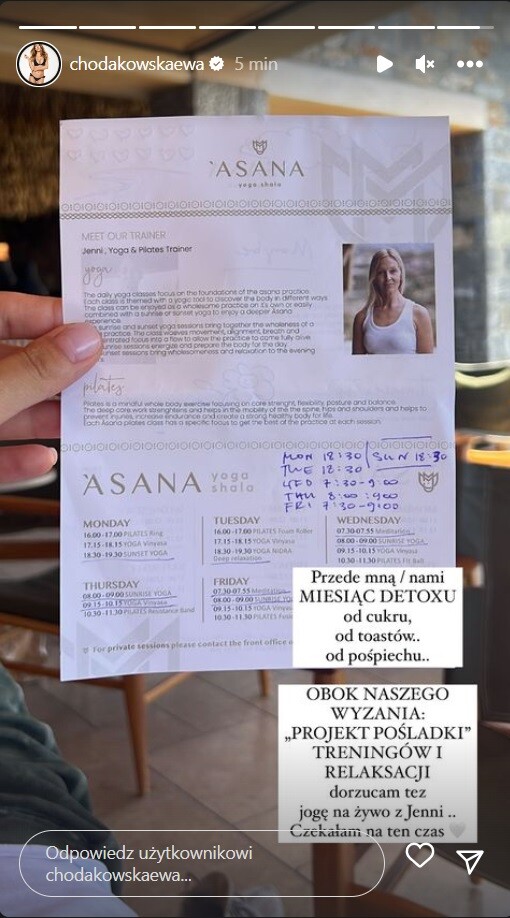 chodakowskaewa 5 min
ASANA
yoga.shala
MEET OUR TRAINER
Jenni , Yoga & Pilates Trainer
yoga
The daily yoga classes focus on the foundations of the asana practice.
Each class is themed with a yogic tool to discover the body in different ways
The class can be enjoyed as a wholesome practice on its own or easily
combined with a sunrise or sunset yoga to enjoy a deeper Asana
experience.
sunrise and sunset yoga sessions bring together the wholeness of a
practice. The class weaves movement, alignment, breath and
focus into a flow to allow the practice to come fully alive
sunrise sessions energize and prepare the body for the day.
sunset sessions bring wholesomeness and relaxation to the evening
pilates
Pilates is a mindful whole body exercise focusing on core strenght, flexibility, posture and balance.
The deep core work strenghtens and helps in the mobility of the the spine, hips and shoulders and helps to
prevent injuries, increase endurance and create a strong healthy body for life.
Each Asana pilates class has a specific focus to get the best of the practice at each session.
MON 18:30 SUN 18:30
TUE 18:30
WED 7:30-9:00
THU 8:00 :900
FRI 7:30-9:00
ASANA yoga
shala
MONDAY
16.00-17.00 PILATES Ring
17.15-18.15 YOGA Vinyasa
18.30-19.30 SUNSET YOGA
TUESDAY
16.00-17.00 PILATES Foam Roller
17.15-18.15 YOGA Vinyasa
18.30-19.30 YOGA NIDRA
Deep relaxation
WEDNESDAY
07.30-07.55 Meditation
08.00-09.00 SUNRISE YOGA
09.15-10.15 YOGA Vinyasa
10.30-11.30 PILATES Fit Ball
THURSDAY
08.00-09.00 SUNRISE YOGA
09.15-10.15 YOGA Vinyasa
10.30-11.30 PILATES Resistance Band
FRIDAY
07.30-07.55 Meditation
08.00-09.00 SUNRISE YO
09.15-10.15 YOGA Vinyas
10.30-11.30 PILATES
For private sessions please contact the front office o
Przede mną / nami
MIESIĄC DETOXU
od cukru,
od toastów..
od pośpiechu..
OBOK NASZEGO
WYZANIA:
„PROJEKT POŚLADKI”
TRENINGÓW I
RELAKSACJI
dorzucam tez
jogę na żywo z Jenni ..
Czekałam na ten czas
Odpowiedz użytkownikowi
chodakowskaewa...